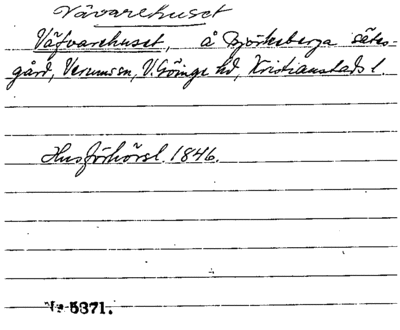 Vävarehuset
Väfvarehuset, å Björkeberga sätes-
gård, Verums sn, V. Göinge hd, Kristianstads l.
Husförhörsl. 1846.
No 5371.